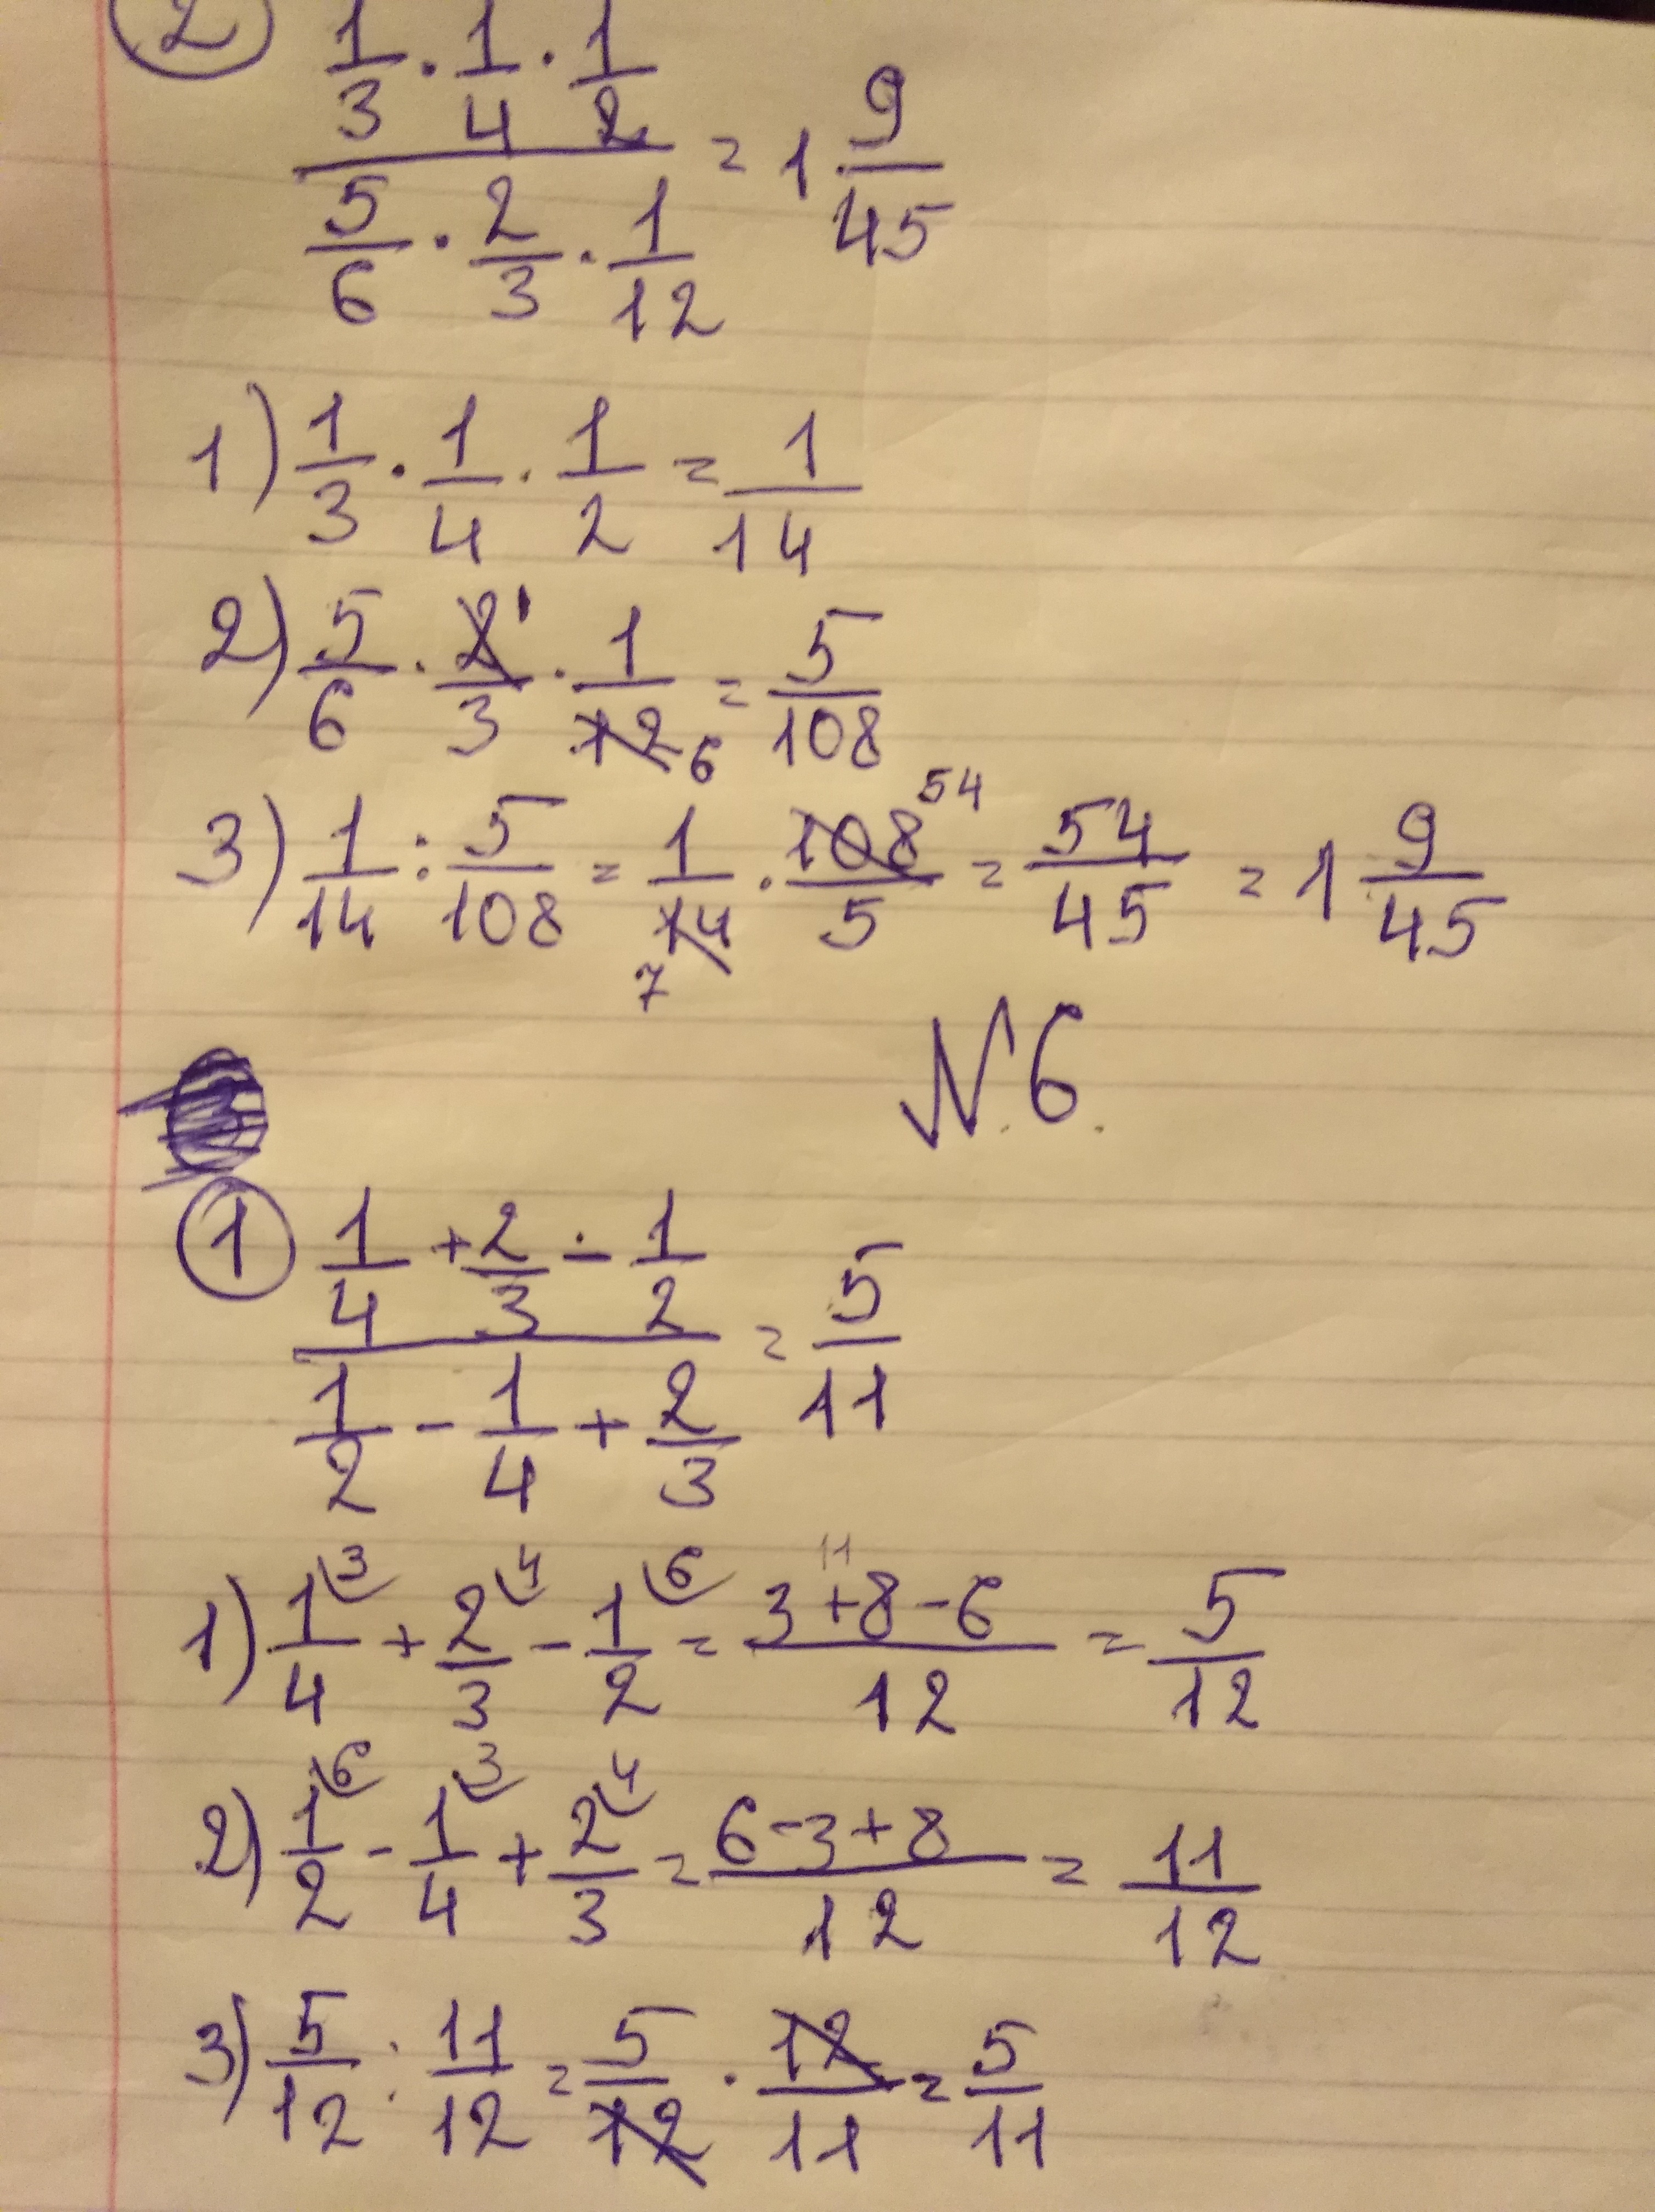 2) (1/3 · 1/4 · 1/2) / (5/6 · 2/3 · 1/12) = 1 9/45
1) 1/3 · 1/4 · 1/2 = 1/14
2) 5/6 · 2¹/3 · 1/12₆ = 5/108
3) 1/14 : 5/108 = 1/14₇ · 108⁵⁴/5 = 54/45 = 1 9/45
N.6.
1 (1/4 + 2/3 - 1/2) / (1/2 - 1/4 + 2/3) = 5/11
1) 1/4 ³ + 2/3 ⁴ - 1/2 ⁶ = (3 + 8 - 6)/12 ¹¹ = 5/12
2) 1/2 ⁶ - 1/4 ³ + 2/3 ⁴ = (6 - 3 + 8)/12 = 11/12
3) 5/12 : 11/12 = 5/12 · 12/11 = 5/11